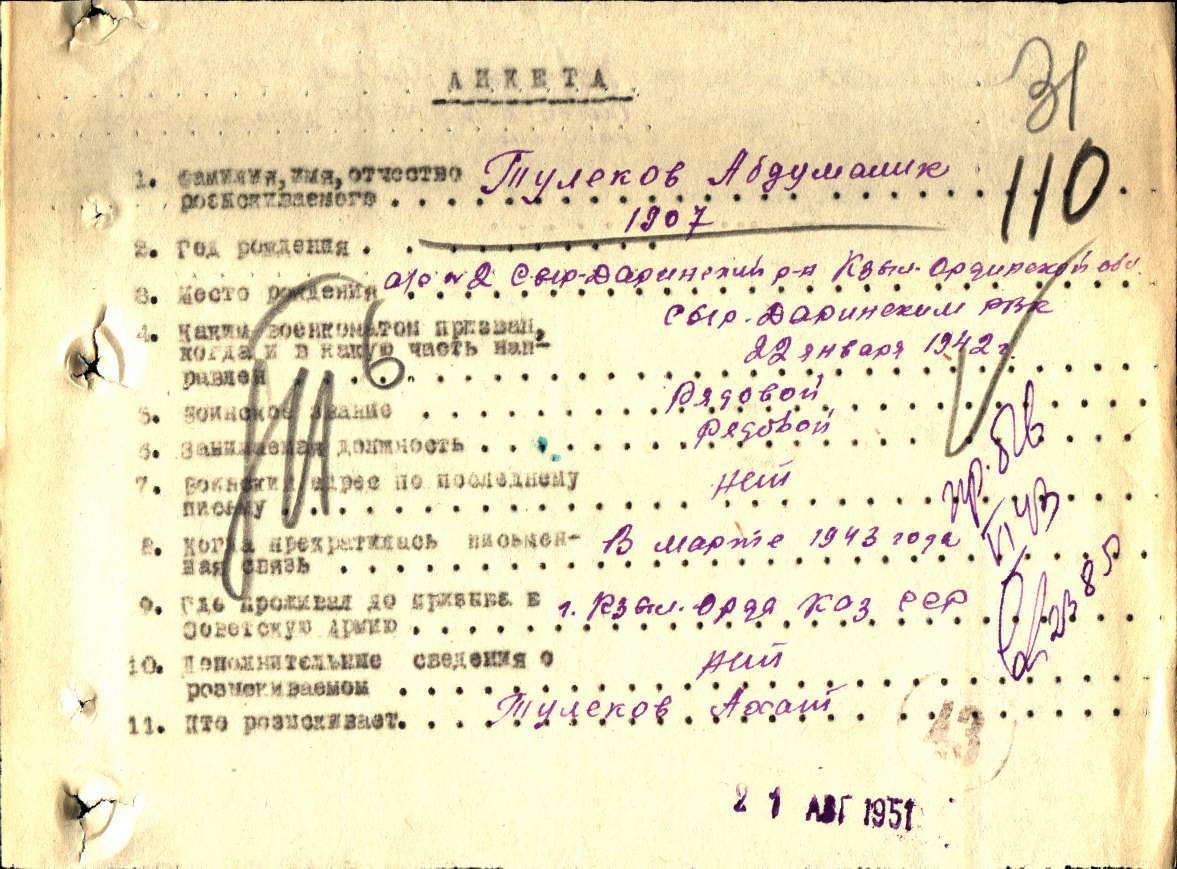 АНКЕТА
31
110
1. Фамилия, имя, отчество Тулеков Абдумалик
розыскиваемого
2. Год рождения 1907
3. Место рождения а/с №2 Сыр-Даринский р-н Кзыл-Ординской обл.
4. Каким военкоматом призван, Сыр-Даринским РВК
когда и в какую часть нап- 22 января 1942 г.
равлен
5. Воинское звание Рядовой
6. Занимаемая должность Рядовой
7. Воинский адрес по последнему нет
письму
8. Когда прекратилась письмен- В марте 1943 года
ная связь
9. Где проживал до призыва в г. Кзыл-Орда Каз ССР
Советскую Армию
10. Дополнительные сведения о нет
розыскиваемом
11. Кто розыскивает. Тулеков Ахат
43
21 АВГ 1951